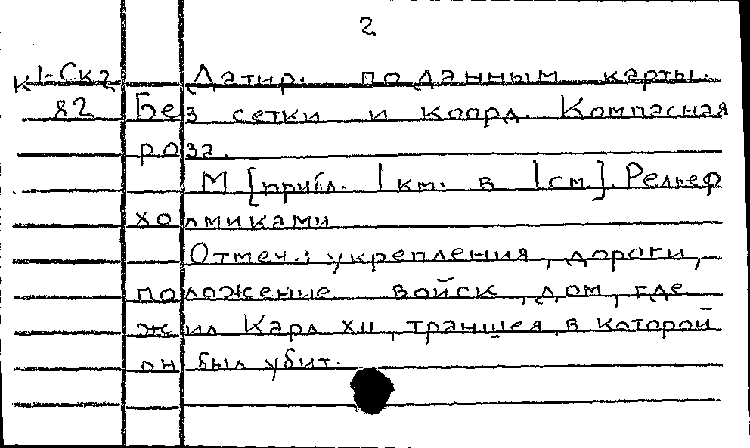 2
К 1-Ск2 Датир. по данным карты.
82 Без сетки и коорд. Компасная
роза.
М [прибл. 1 км. в 1 см]. Рельеф
холмиками
Отмеч.: укрепления, дороги,
положение войск, дом, где
жил Карл XII, траншея, в которой
он был убит.